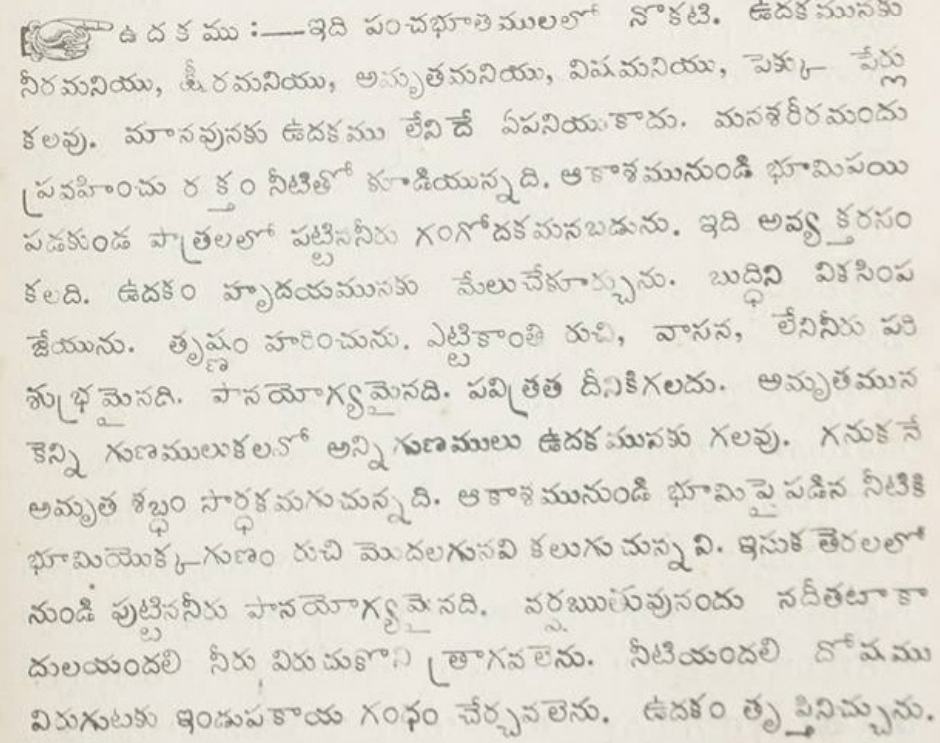 ఉ ద క ము :—ఇది పంచభూతములలో నొకటి. ఉదకమునకు
నీరమనియు, క్షీరమనియు, అమృతమనియు, విషమనియు, పెక్కు పేర్లు
కలవు. మానవునకు ఉదకము లేనిదే ఏపనియుకాదు. మనశరీరమందు
ప్రవహించు రక్తం నీటితో కూడియున్నది. ఆకాశమునుండి భూమిపయి
పడకుండ పాత్రలలో పట్టిననీరు గంగోదకమనబడును. ఇది అవ్యక్తరసం
కలది. ఉదకం హృదయమునకు మేలుచేకూర్చును. బుద్ధిని వికసింప
జేయును. తృష్ణం హరించును. ఎట్టికాంతి రుచి, వాసన, లేనినీరు పరి
శుభ్రమైనది. పానయోగ్యమైనది. పవిత్రత దీనికిగలదు. అమృతమున
కెన్ని గుణములుకలవో అన్నిగుణములు ఉదకమునకు గలవు. గనుకనే
అమృత శబ్దం సార్ధకమగుచున్నది. ఆకాశమునుండి భూమిపై పడిన నీటికి
భూమియొక్క గుణం రుచి మొదలగునవి కలుగుచున్నవి. ఇసుక తెరలలో
నుండి పుట్టిననీరు పానయోగ్యమైనది. వర్షఋతువునందు నదీతటాకా
దులయందలి నీరు విరుచుకొని త్రాగవలెను. నీటియందలి దోషము
విరుగుటకు ఇండుపకాయ గంధం చేర్చవలెను. ఉదకం తృప్తినిచ్చును.